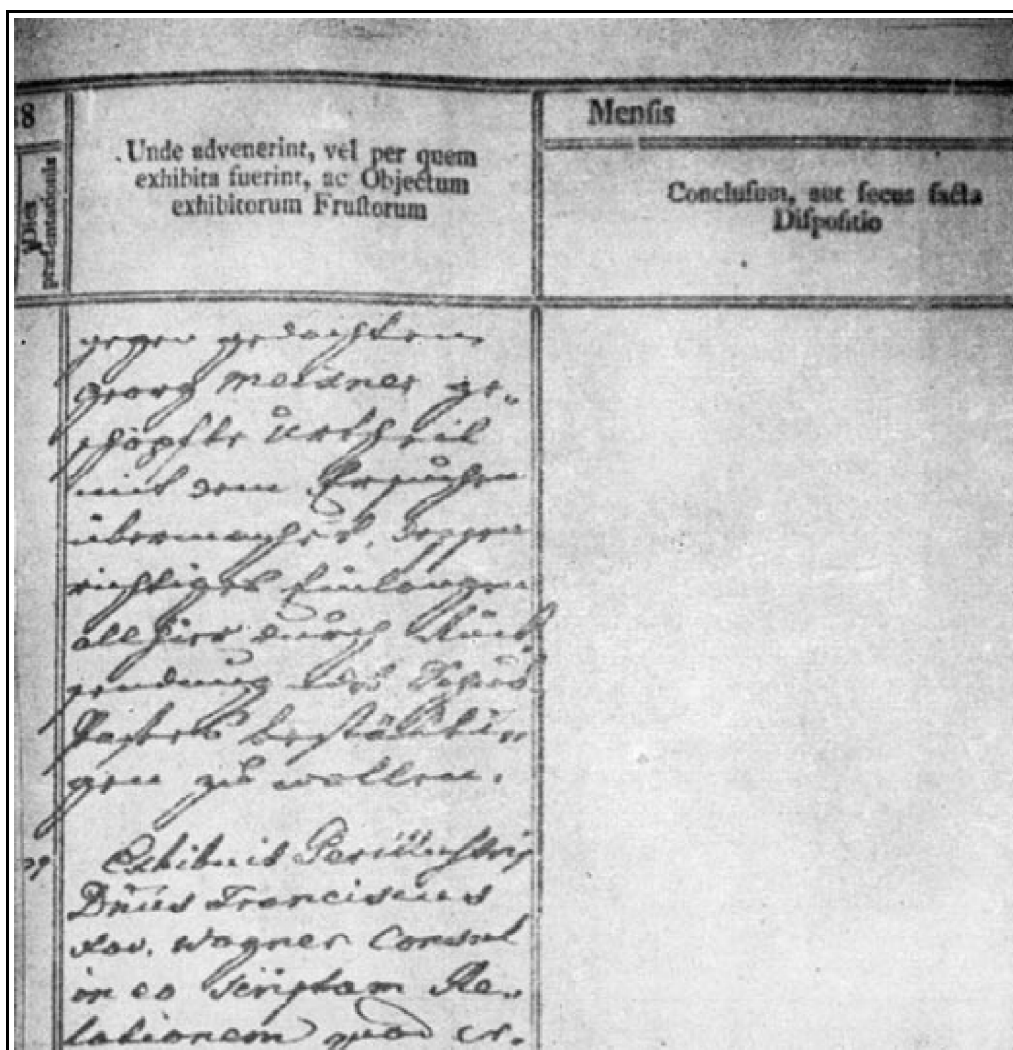 18
Mensis
Dies
præsentationis
Unde advenerint, vel per quem
exhibita fuerint, ac Objectum
exhibitorum Frustorum
Conclusum, aut secus facta
Dispositio
gegen gedachten
Georg Meixner ge-
schöpfte Urtheil
mit dem Ersuchen
übermachet, dessen
richtiges Einlangen
allhier durch Rück
sendung des
bestätti-
gen zu wollen.
Exhibuit Perillustris
Dnus Franciscus
Xav. Wagner Consul
in eo scriptam Re-
lationem quod